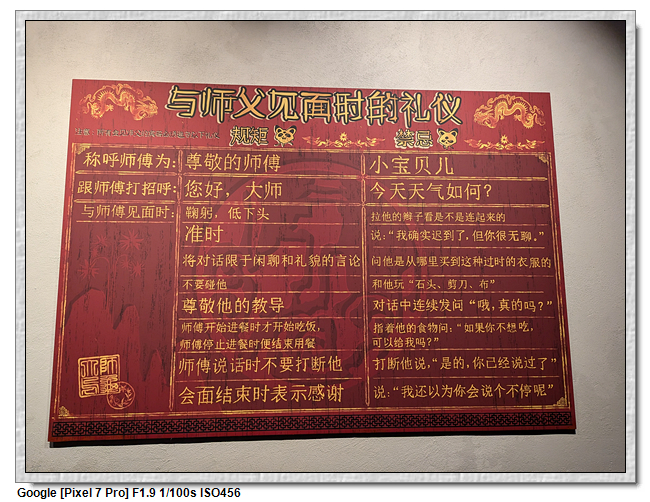 与师父见面时的礼仪
规矩 禁忌
称呼师傅为: 尊敬的师傅 小宝贝儿
跟师傅打招呼: 您好，大师 今天天气如何?
与师傅见面时: 鞠躬，低下头 拉他的辫子看是不是连起来的
准时 说:“我确实迟到了，但你很无聊。”
将对话限于闲聊和礼貌的言论 问他是从哪里买到这种过时的衣服的
不要碰他 和他玩“石头、剪刀、布”
尊敬他的教导 对话中连续发问“哦，真的吗?”
师傅开始进餐时才开始吃饭， 指着他的食物问:“如果你不想吃，
师傅停止进餐时便结束用餐 可以给我吗?”
师傅说话时不要打断他 打断他说，“是的，你已经说过了”
会面结束时表示感谢 说:“我还以为你会说个不停呢”
Google [Pixel 7 Pro] F1.9 1/100s ISO456